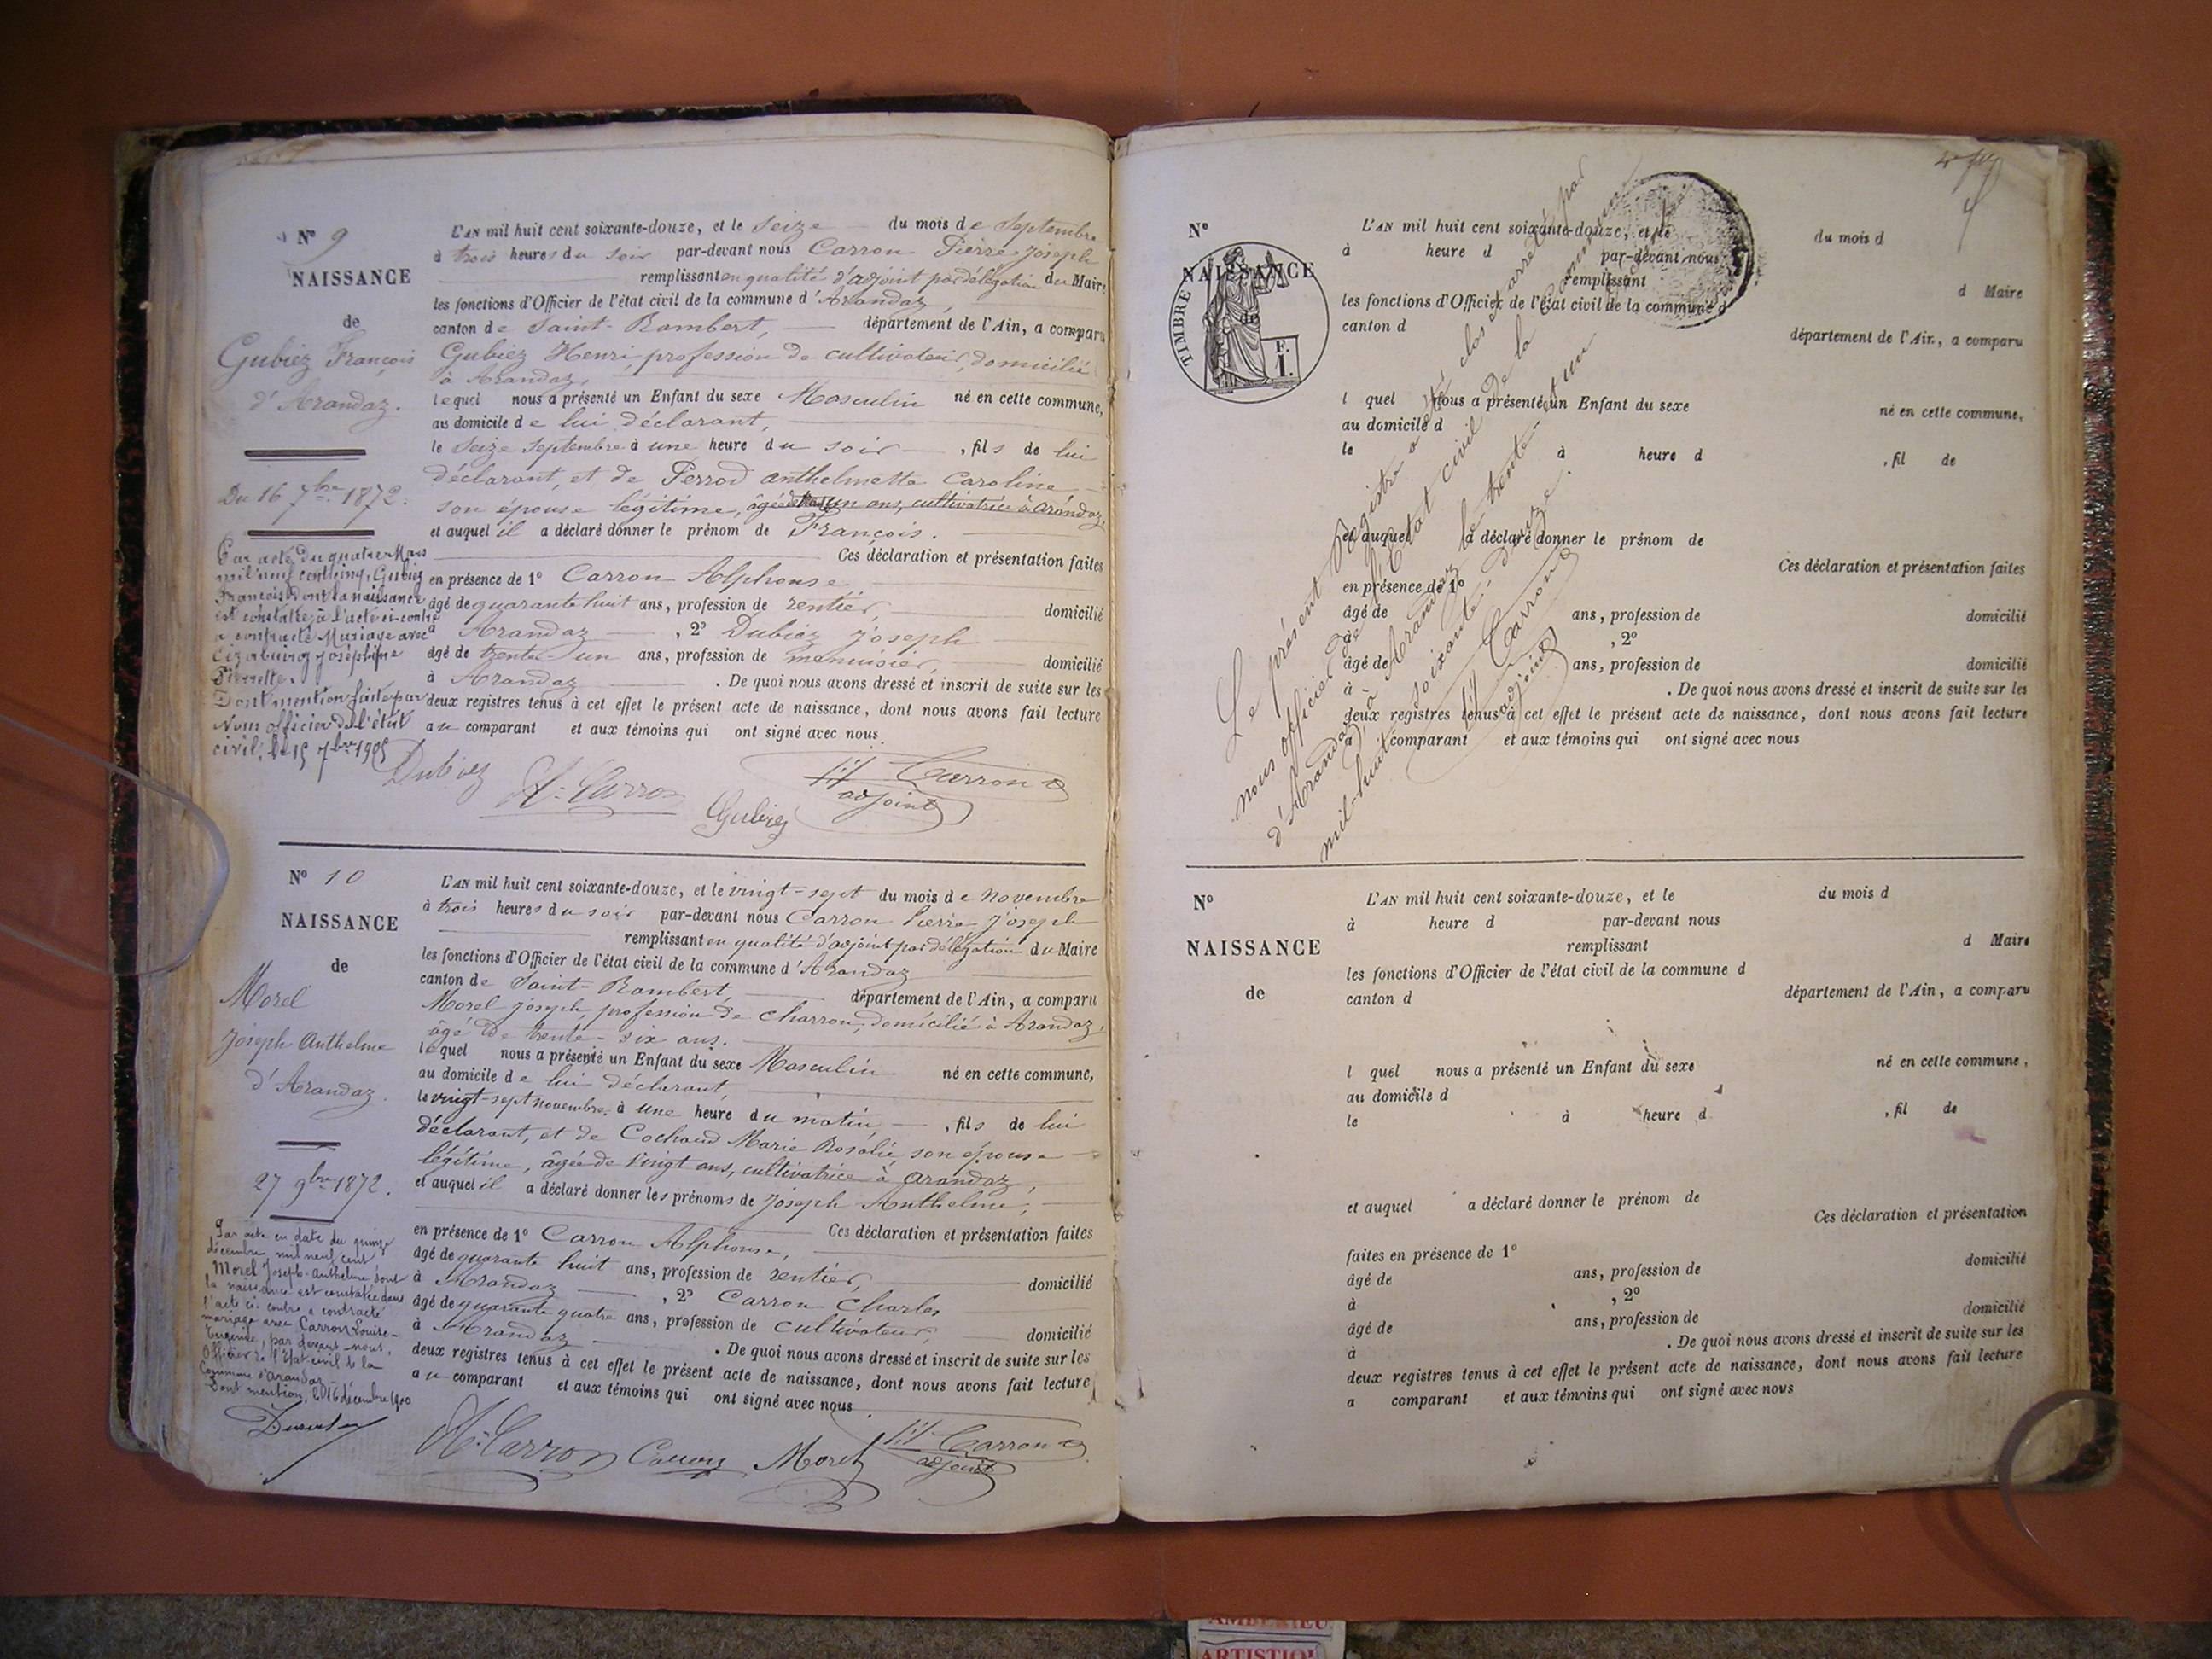 N° 9
NAISSANCE
de
Gubiez François
d'Arandaz.
Du 16 7bre 1872.
Par acte du quatre Mars
mil neuf cent cinq, Gubiez
François dont la naissance
est constatée à l'acte ci-contre
a contracté Mariage avec
Joséphine
Pierrette.
Dont mention faite par
Nous officier de l'état
civil, le 15 7bre 1905
L'AN mil huit cent soixante-douze, et le seize du mois de Septembre
à trois heures du soir par-devant nous Carron Pierre Joseph
remplissant en qualité d'adjoint par délégation du Maire
les fonctions d'Officier de l'état civil de la commune d'Arandaz,
canton de Saint-Rambert, département de l'Ain, a comparu
Gubiez Henri, profession de cultivateur, domicilié
à Arandaz,
lequel nous a présenté un Enfant du sexe Masculin né en cette commune,
au domicile de lui déclarant,
le seize septembre à une heure du soir , fils de lui
déclarant, et de Perrod Anthelmette Caroline
son épouse légitime, âgée de un ans, cultivatrice à Arandaz,
et auquel il a déclaré donner le prénom de François.
Ces déclaration et présentation faites
en présence de 1° Carron Alphonse
âgé de quarante huit ans, profession de rentier, domicilié
à Arandaz , 2° Dubiez Joseph
âgé de trente-un ans, profession de menuisier, domicilié
à Arandaz . De quoi nous avons dressé et inscrit de suite sur les
deux registres tenus à cet effet le présent acte de naissance, dont nous avons fait lecture
au comparant et aux témoins qui ont signé avec nous.
Dubiez
A. Carron
Gubiez
Carron
adjoint
N° 10
NAISSANCE
de
Morel
Joseph Anthelme
d'Arandaz.
27 9bre 1872.
Par acte en date du quinze
décembre mil neuf cent
Morel Joseph-Anthelme dont
la naissance est constatée dans
l'acte ci-contre a contracté
mariage avec Carron Louise-
Eugénie, par devant nous,
Officier de l'Etat civil de la
Commune d'Arandaz
Dont mention, le 16 décembre 1900
L'AN mil huit cent soixante-douze, et le vingt-sept du mois de novembre
à trois heures du soir par-devant nous Carron Pierre Joseph
remplissant en qualité d'adjoint par délégation du Maire
les fonctions d'Officier de l'état civil de la commune d'Arandaz
canton de Saint-Rambert, département de l'Ain, a comparu
Morel Joseph, profession de charron, domicilié à Arandaz,
âgé de trente-six ans.
lequel nous a présenté un Enfant du sexe Masculin né en cette commune,
au domicile de lui déclarant,
le vingt-sept novembre à une heure du matin , fils de lui
déclarant, et de Cochaud Marie Rosalie son épouse
légitime, âgée de vingt ans, cultivatrice à Arandaz,
et auquel il a déclaré donner les prénoms de Joseph Anthelme,
Ces déclaration et présentation faites
en présence de 1° Carron Alphonse,
âgé de quarante huit ans, profession de rentier, domicilié
à Arandaz , 2° Carron Charles
âgé de quarante quatre ans, profession de cultivateur, domicilié
à Arandaz . De quoi nous avons dressé et inscrit de suite sur les
deux registres tenus à cet effet le présent acte de naissance, dont nous avons fait lecture
au comparant et aux témoins qui ont signé avec nous.
A. Carron
Carron
Morel
Carron
adjoint
N°
NAISSANCE
de
TIMBRE
F.
1.
L'AN mil huit cent soixante-douze, et le du mois d
à heure d par-devant nous
remplissant d Maire
les fonctions d'Officier de l'état civil de la commune d
canton d département de l'Ain, a comparu
l quel nous a présenté un Enfant du sexe né en cette commune,
au domicile d
le à heure d , fil de
et auquel a déclaré donner le prénom de
Ces déclaration et présentation faites
en présence de 1°
âgé de ans, profession de domicilié
à , 2°
âgé de ans, profession de domicilié
à . De quoi nous avons dressé et inscrit de suite sur les
deux registres tenus à cet effet le présent acte de naissance, dont nous avons fait lecture
a comparant et aux témoins qui ont signé avec nous
Le présent Registre a été clos et arrêté par
nous officier de l'Etat civil de la Commune
d'Arandaz, à Arandaz le trente-et-un
mil-huit-soixante-douze.
Carron
adjoint
N°
NAISSANCE
de
L'AN mil huit cent soixante-douze, et le du mois d
à heure d par-devant nous
remplissant d Maire
les fonctions d'Officier de l'état civil de la commune d
canton d département de l'Ain, a comparu
l quel nous a présenté un Enfant du sexe né en cette commune,
au domicile d
le à heure d , fil de
et auquel a déclaré donner le prénom de
Ces déclaration et présentation
faites en présence de 1°
âgé de ans, profession de domicilié
à , 2°
âgé de ans, profession de domicilié
à . De quoi nous avons dressé et inscrit de suite sur les
deux registres tenus à cet effet le présent acte de naissance, dont nous avons fait lecture
a comparant et aux témoins qui ont signé avec nous